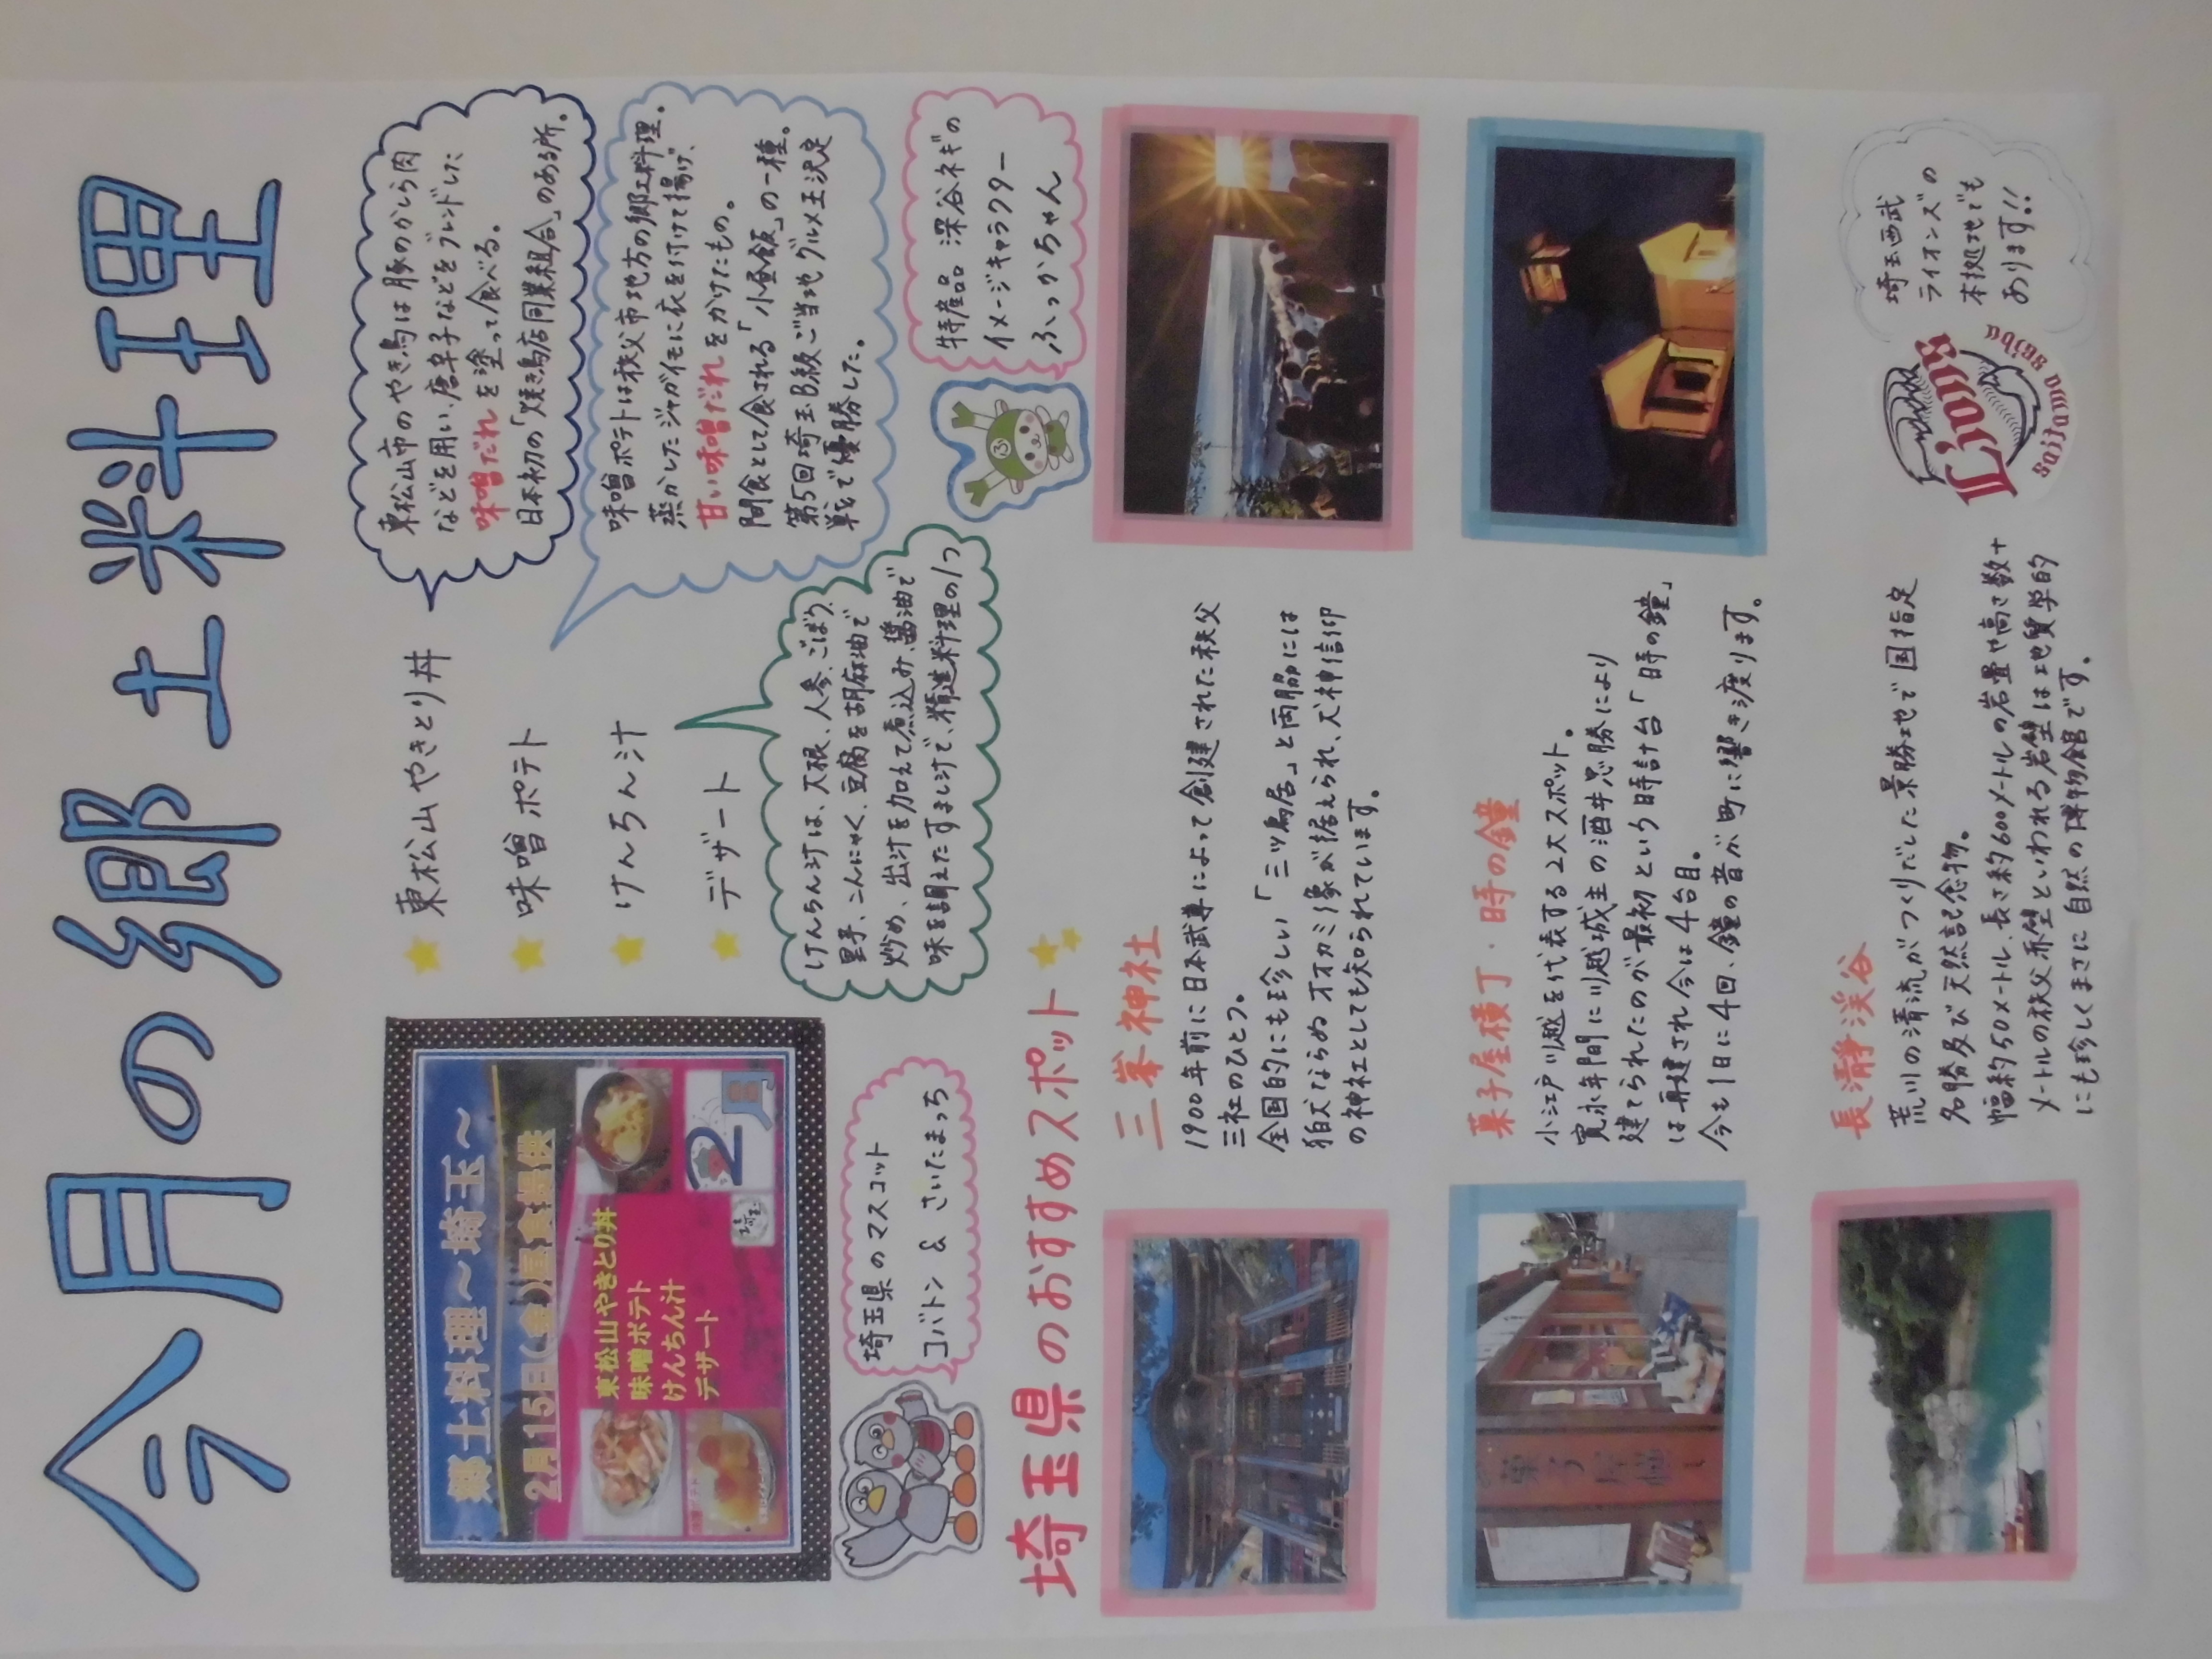 今月の郷土料理
郷土料理～埼玉～
2月15日(金)昼食提供
東松山やきとり丼
味噌ポテト
けんちん汁
デザート
2月
埼玉
東松山やきとり丼
味噌ポテト
けんちん汁
デザート
東松山市のやき鳥は豚のかしら肉
などを用い、唐辛子などをブレンドした
味噌だれを塗って食べる。
日本初の「焼き鳥店同業組合」のある所。
味噌ポテトは秩父市地方の郷土料理。
蒸かしたジャガイモに衣を付けて揚げ、
甘い味噌だれをかけたもの。
間食として食される「小昼飯」の一種。
第5回埼玉B級ご当地グルメ王決定
戦で優勝した。
けんちん汁は、大根、人参、ごぼう、
里芋、こんにゃく、豆腐を胡麻油で
炒め、出汁を加えて煮込み、醤油で
味を調えたすまし汁で、精進料理の1つ
埼玉県のマスコット
コバトン & さいたまっち
特産品 深谷ネギの
イメージキャラクター
ふっかちゃん
ふ
埼玉県のおすすめスポット
三峯神社
1900年前に日本武尊によって創建された秩父
三社のひとつ。
全国的にも珍しい「三ツ鳥居」と両脇には
狛犬ならぬオオカミ像が据えられ、犬神信仰
の神社としても知られています。
菓子屋横丁・時の鐘
小江戸川越を代表する2大スポット。
寛永年間に川越城主の酒井忠勝により
建てられたのが最初という時計台「時の鐘」
は再建され今は4台目。
今も1日に4回、鐘の音が町に響き渡ります。
菓子屋横
長瀞渓谷
荒川の清流がつくりだした景勝地で国指定
名勝及び天然記念物。
幅約50メートル、長さ約600メートルの岩畳や高さ数十
メートルの秩父赤壁といわれる岩壁は地質学的
にも珍しくまさに自然の博物館です。
Lions
saitama seibu
埼玉西武
ライオンズの
本拠地でも
あります!!